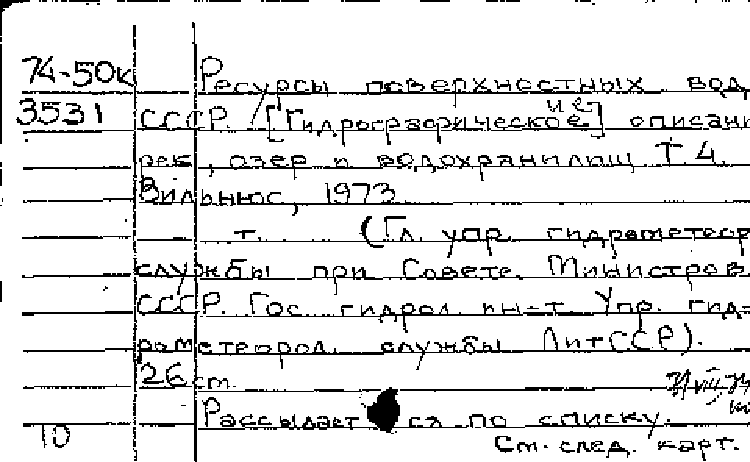 74-50к Ресурсы поверхностных вод
3531 СССР. [Гидрографическое] описани
рек, озер и водохранилищ Т 4
Вильнюс, 1973
т. (Гл. упр. гидрометеор
службы при Совете Министров
СССР. Гос. гидрол. ин-т Упр. гид-
рометеорол. службы ЛитССР).
26 см.
Рассылается по списку.
10 См. след. карт.